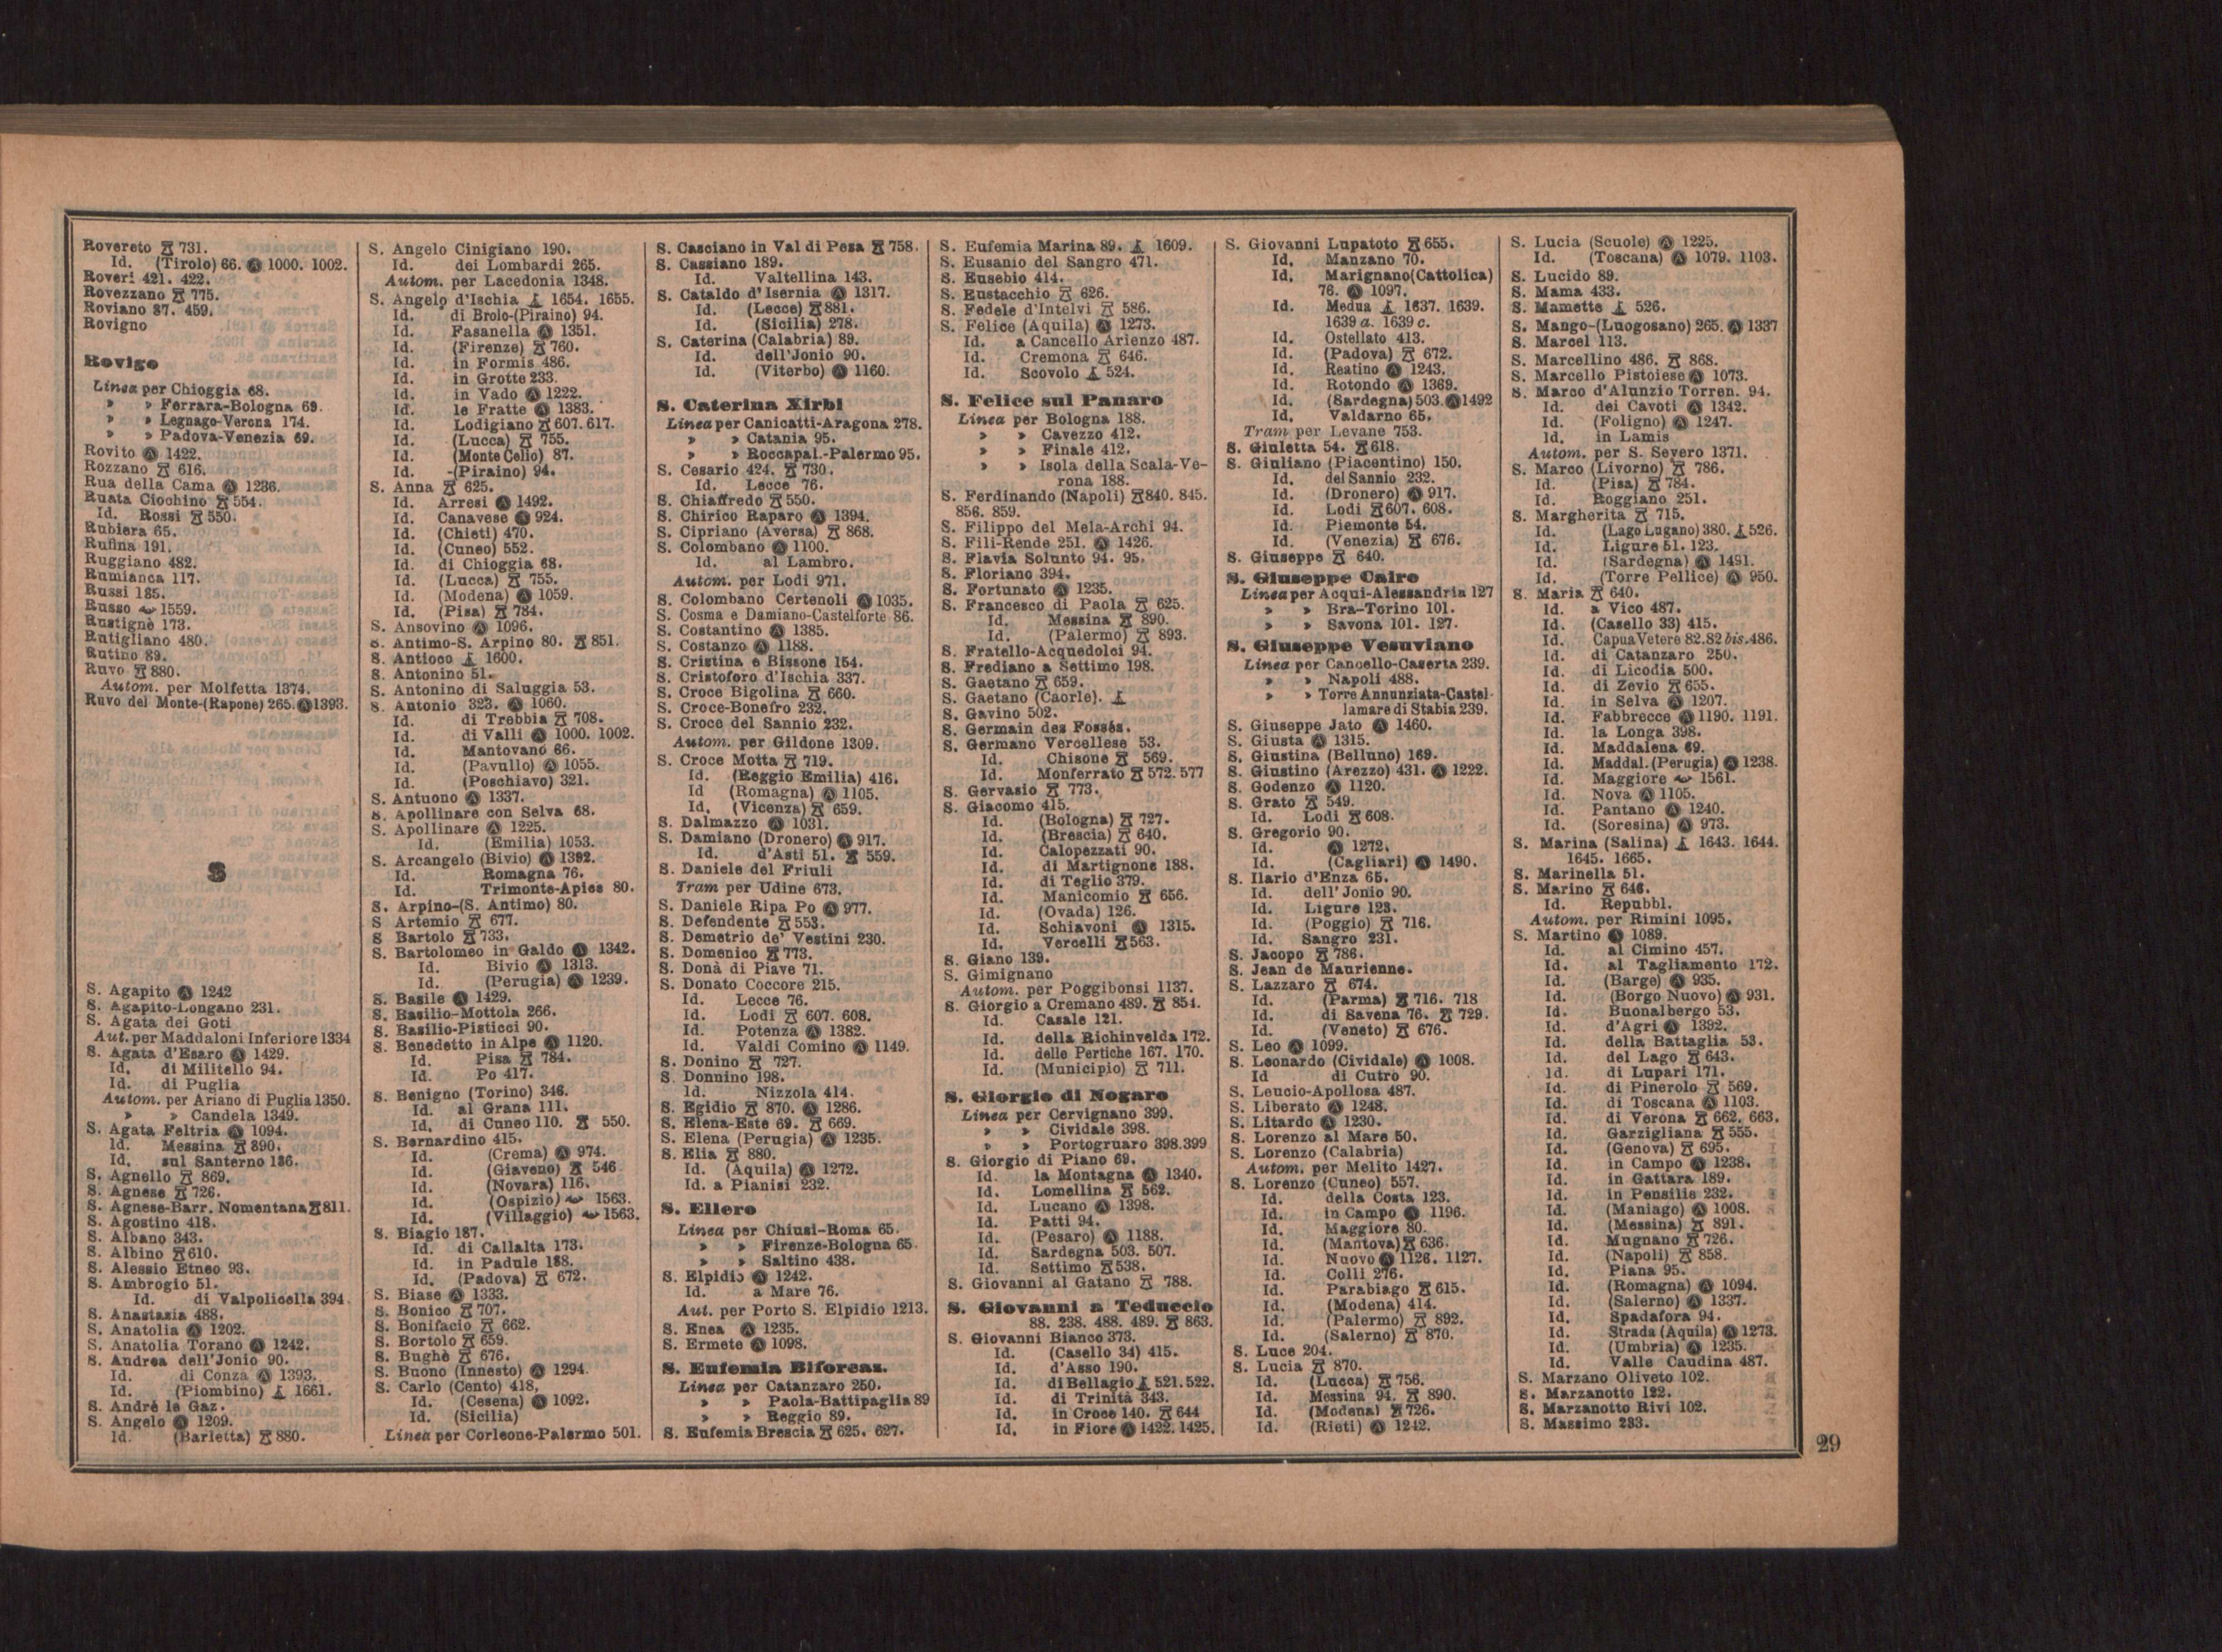 Rovereto 731.
Id. (Tirolo) 66. Ⓐ 1000. 1002.
Roveri 421. 422.
Rovezzano 775.
Roviano 87. 459.
Rovigno
Rovigo
Linea per Chioggia 68.
» » Ferrara-Bologna 69.
» » Legnago-Verona 174.
» » Padova-Venezia 69.
Rovito Ⓐ 1422.
Rozzano 616.
Rua della Cama Ⓐ 1236.
Ruata Ciochino 554.
Id. Rossi 550.
Rubiera 65.
Rufina 191.
Ruggiano 482.
Rumianca 117.
Russi 185.
Russo 1559.
Rustignè 173.
Rutigliano 480.
Rutino 89.
Ruvo 880.
Autom. per Molfetta 1374.
Ruvo del Monte-(Rapone) 265. Ⓐ 1393.
S
S. Agapito Ⓐ 1242
S. Agapito-Longano 231.
S. Agata dei Goti
Aut. per Maddaloni Inferiore 1334
S. Agata d'Esaro Ⓐ 1429.
Id. di Militello 94.
Id. di Puglia
Autom. per Ariano di Puglia 1350.
» » Candela 1349.
S. Agata Feltria Ⓐ 1094.
Id. Messina 890.
Id. sul Santerno 186.
S. Agnello 869.
S. Agnese 726.
S. Agnese-Barr. Nomentana 811.
S. Agostino 418.
S. Albano 343.
S. Albino 610.
S. Alessio Etneo 93.
S. Ambrogio 51.
Id. di Valpolicella 394.
S. Anastasia 488.
S. Anatolia Ⓐ 1202.
S. Anatolia Torano Ⓐ 1242.
S. Andrea dell'Jonio 90.
Id. di Conza Ⓐ 1393.
Id. (Piombino) 1661.
S. Andrè le Gaz.
S. Angelo Ⓐ 1209.
Id. (Barletta) 880.
S. Angelo Cinigiano 190.
Id. dei Lombardi 265.
Autom. per Lacedonia 1348.
S. Angelo d'Ischia 1654. 1655.
Id. di Brolo-(Piraino) 94.
Id. Fasanella Ⓐ 1351.
Id. (Firenze) 760.
Id. in Formis 486.
Id. in Grotte 233.
Id. in Vado Ⓐ 1222.
Id. le Fratte Ⓐ 1383.
Id. Lodigiano 607. 617.
Id. (Lucca) 755.
Id. (Monte Celio) 87.
Id. -(Piraino) 94.
S. Anna 625.
Id. Arresi Ⓐ 1492.
Id. Canavese Ⓐ 924.
Id. (Chieti) 470.
Id. (Cuneo) 552.
Id. di Chioggia 68.
Id. (Lucca) 755.
Id. (Modena) Ⓐ 1059.
Id. (Pisa) 784.
S. Ansovino Ⓐ 1096.
S. Antimo-S. Arpino 80. 851.
S. Antioco 1600.
S. Antonino 51.
S. Antonino di Saluggia 53.
S. Antonio 323. Ⓐ 1060.
Id. di Trebbia 708.
Id. di Valli Ⓐ 1000. 1002.
Id. Mantovano 66.
Id. (Pavullo) Ⓐ 1055.
Id. (Poschiavo) 321.
S. Antuono Ⓐ 1337.
S. Apollinare con Selva 68.
S. Apollinare Ⓐ 1225.
Id. (Emilia) 1053.
S. Arcangelo (Bivio) Ⓐ 1392.
Id. Romagna 76.
Id. Trimonte-Apice 80.
S. Arpino-(S. Antimo) 80.
S Artemio 677.
S Bartolo 733.
S. Bartolomeo in Galdo Ⓐ 1342.
Id. Bivio Ⓐ 1313.
Id. (Perugia) Ⓐ 1239.
S. Basile Ⓐ 1429.
S. Basilio-Mottola 266.
S. Basilio-Pisticci 90.
S. Benedetto in Alpe Ⓐ 1120.
Id. Pisa 784.
Id. Po 417.
S. Benigno (Torino) 346.
Id. al Grana 111.
Id. di Cuneo 110. 550.
S. Bernardino 415.
Id. (Crema) Ⓐ 974.
Id. (Giaveno) 546
Id. (Novara) 116.
Id. (Ospizio) 1563.
Id. (Villaggio) 1563.
S. Biagio 187.
Id. di Callalta 173.
Id. in Padule 188.
Id. (Padova) 672.
S. Biase Ⓐ 1333.
S. Bonico 707.
S. Bonifacio 662.
S. Bortolo 659.
S. Bughè 676.
S. Buono (Innesto) Ⓐ 1294.
S. Carlo (Cento) 418,
Id. (Cesena) Ⓐ 1092.
Id. (Sicilia)
Linea per Corleone-Palermo 501.
S. Casciano in Val di Pesa 758.
S. Cassiano 189.
Id. Valtellina 143.
S. Cataldo d'Isernia Ⓐ 1317.
Id. (Lecce) 881.
Id. (Sicilia) 278.
S. Caterina (Calabria) 89.
Id. dell'Jonio 90.
Id. (Viterbo) Ⓐ 1160.
S. Caterina Xirbi
Linea per Canicatti-Aragona 278.
» » Catania 95.
» » Roccapal.-Palermo 95.
S. Cesario 424. 730.
Id. Lecce 76.
S. Chiaffredo 550.
S. Chirico Raparo Ⓐ 1394.
S. Cipriano (Aversa) 868.
S. Colombano Ⓐ 1100.
Id. al Lambro.
Autom. per Lodi 971.
S. Colombano Certenoli Ⓐ 1035.
S. Cosma e Damiano-Castelforte 86.
S. Costantino Ⓐ 1385.
S. Costanzo Ⓐ 1188.
S. Cristina e Bissone 154.
S. Cristoforo d'Ischia 337.
S. Croce Bigolina 660.
S. Croce-Bonefro 232.
S. Croce del Sannio 232.
Autom. per Gildone 1309.
S. Croce Motta 719.
Id. (Reggio Emilia) 416.
Id (Romagna) Ⓐ 1105.
Id. (Vicenza) 659.
S. Dalmazzo Ⓐ 1031.
S. Damiano (Dronero) Ⓐ 917.
Id. d'Asti 51. 559.
S. Daniele del Friuli
Tram per Udine 673.
S. Daniele Ripa Po Ⓐ 977.
S. Defendente 553.
S. Demetrio de' Vestini 230.
S. Domenico 773.
S. Donà di Piave 71.
S. Donato Coccore 215.
Id. Lecce 76.
Id. Lodi 607. 608.
Id. Potenza Ⓐ 1382.
Id. Valdi Comino Ⓐ 1149.
S. Donino 727.
S. Donnino 198.
Id. Nizzola 414.
S. Egidio 870. Ⓐ 1286.
S. Elena-Este 69. 669.
S. Elena (Perugia) Ⓐ 1235.
S. Elia 880.
Id. (Aquila) Ⓐ 1272.
Id. a Pianisi 232.
S. Ellero
Linea per Chiusi-Roma 65.
» » Firenze-Bologna 65.
» » Saltino 438.
S. Elpidio Ⓐ 1242.
Id. a Mare 76.
Aut. per Porto S. Elpidio 1213.
S. Enea Ⓐ 1235.
S. Ermete Ⓐ 1098.
S. Eufemia Biforcaz.
Linea per Catanzaro 250.
» » Paola-Battipaglia 89
» » Reggio 89.
S. Eufemia Brescia 625. 627.
S. Eufemia Marina 89. 1609.
S. Eusanio del Sangro 471.
S. Eusebio 414.
S. Eustacchio 626.
S. Fedele d'Intelvi 586.
S. Felice (Aquila) Ⓐ 1273.
Id. a Cancello Arienzo 487.
Id. Cremona 646.
Id. Scovolo 524.
S. Felice sul Panaro
Linea per Bologna 188.
» » Cavezzo 412.
» » Finale 412.
» » Isola della Scala-Ve-
rona 188.
S. Ferdinando (Napoli) 840. 845.
856. 859.
S. Filippo del Mela-Archi 94.
S. Fili-Rende 251. Ⓐ 1426.
S. Flavia Solunto 94. 95.
S. Floriano 394.
S. Fortunato Ⓐ 1235.
S. Francesco di Paola 625.
Id. Messina 890.
Id. (Palermo) 893.
S. Fratello-Acquedolci 94.
S. Frediano a Settimo 198.
S. Gaetano 659.
S. Gaetano (Caorle).
S. Gavino 502.
S. Germain des Fossés.
S. Germano Vercellese 53.
Id. Chisone 569.
Id. Monferrato 572. 577
S. Gervasio 773.
S. Giacomo 415.
Id. (Bologna) 727.
Id. (Brescia) 640.
Id. Calopezzati 90.
Id. di Martignone 188.
Id. di Teglio 379.
Id. Manicomio 656.
Id. (Ovada) 126.
Id. Schiavoni Ⓐ 1315.
Id. Vercelli 563.
S. Giano 139.
S. Gimignano
Autom. per Poggibonsi 1137.
S. Giorgio a Cremano 489. 854.
Id. Casale 121.
Id. della Richinvelda 172.
Id. delle Pertiche 167. 170.
Id. (Municipio) 711.
S. Giorgio di Nogaro
Linea per Cervignano 399.
» » Cividale 398.
» » Portogruaro 398.399
S. Giorgio di Piano 69.
Id. la Montagna Ⓐ 1340.
Id. Lomellina 562.
Id. Lucano Ⓐ 1398.
Id. Patti 94.
Id. (Pesaro) Ⓐ 1188.
Id. Sardegna 503. 507.
Id. Settimo 538.
S. Giovanni al Gatano 788.
S. Giovanni a Teduccio
88. 238. 488. 489. 863.
S. Giovanni Bianco 373.
Id. (Casello 34) 415.
Id. d'Asso 190.
Id. di Bellagio 521.522.
Id. di Trinità 343.
Id. in Croce 140. 644
Id. in Fiore Ⓐ 1422. 1425.
S. Giovanni Lupatoto 655.
Id. Manzano 70.
Id. Marignano(Cattolica)
76. Ⓐ 1097.
Id. Medua 1637. 1639.
1639 a. 1639 c.
Id. Ostellato 413.
Id. (Padova) 672.
Id. Reatino Ⓐ 1243.
Id. Rotondo Ⓐ 1369.
Id. (Sardegna) 503. Ⓐ 1492
Id. Valdarno 65.
Tram per Levane 753.
S. Giuletta 54. 618.
S. Giuliano (Piacentino) 150.
Id. del Sannio 232.
Id. (Dronero) Ⓐ 917.
Id. Lodi 607. 608.
Id. Piemonte 54.
Id. (Venezia) 676.
S. Giuseppe 640.
S. Giuseppe Cairo
Linea per Acqui-Alessandria 127
» » Bra-Torino 101.
» » Savona 101. 127.
S. Giuseppe Vesuviano
Linea per Cancello-Caserta 239.
» » Napoli 488.
» » Torre Annunziata-Castel-
lamare di Stabia 239.
S. Giuseppe Jato Ⓐ 1460.
S. Giusta Ⓐ 1315.
S. Giustina (Belluno) 169.
S. Giustino (Arezzo) 431. Ⓐ 1222.
S. Godenzo Ⓐ 1120.
S. Grato 549.
Id. Lodi 608.
S. Gregorio 90.
Id. Ⓐ 1272.
Id. (Cagliari) Ⓐ 1490.
S. Ilario d'Enza 65.
Id. dell'Jonio 90.
Id. Ligure 123.
Id. (Poggio) 716.
Id. Sangro 231.
S. Jacopo 786.
S. Jean de Maurienne.
S. Lazzaro 674.
Id. (Parma) 716. 718
Id. di Savena 76. 729.
Id. (Veneto) 676.
S. Leo Ⓐ 1099.
S. Leonardo (Cividale) Ⓐ 1008.
Id di Cutro 90.
S. Leucio-Apollosa 487.
S. Liberato Ⓐ 1248.
S. Litardo Ⓐ 1230.
S. Lorenzo al Mare 50.
S. Lorenzo (Calabria)
Autom. per Melito 1427.
S. Lorenzo (Cuneo) 557.
Id. della Costa 123.
Id. in Campo Ⓐ 1196.
Id. Maggiore 80.
Id. (Mantova) 636.
Id. Nuovo Ⓐ 1126. 1127.
Id. Colli 276.
Id. Parabiago 615.
Id. (Modena) 414.
Id. (Palermo) 892.
Id. (Salerno) 870.
S. Luce 204.
S. Lucia 870.
Id. (Lucca) 756.
Id. Messina 94. 890.
Id. (Modena) 726.
Id. (Rieti) Ⓐ 1242.
S. Lucia (Scuole) Ⓐ 1225.
Id. (Toscana) Ⓐ 1079. 1103.
S. Lucido 89.
S. Mama 433.
S. Mamette 526.
S. Mango-(Luogosano) 265. Ⓐ 1337
S. Marcel 113.
S. Marcellino 486. 868.
S. Marcello Pistoiese Ⓐ 1073.
S. Marco d'Alunzio Torren. 94.
Id. dei Cavoti Ⓐ 1342.
Id. (Foligno) Ⓐ 1247.
Id. in Lamis
Autom. per S. Severo 1371.
S. Marco (Livorno) 786.
Id. (Pisa) 784.
Id. Roggiano 251.
S. Margherita 715.
Id. (Lago Lugano) 380. 526.
Id. Ligure 51. 123.
Id. (Sardegna) Ⓐ 1491.
Id. (Torre Pellice) Ⓐ 950.
S. Maria 640.
Id. a Vico 487.
Id. (Casello 33) 415.
Id. Capua Vetere 82.82 bis.486.
Id. di Catanzaro 250.
Id. di Licodia 500.
Id. di Zevio 655.
Id. in Selva Ⓐ 1207.
Id. Fabbrecce Ⓐ 1190. 1191.
Id. la Longa 398.
Id. Maddalena 69.
Id. Maddal.(Perugia) Ⓐ 1238.
Id. Maggiore 1561.
Id. Nova Ⓐ 1105.
Id. Pantano Ⓐ 1240.
Id. (Soresina) Ⓐ 973.
S. Marina (Salina) 1643. 1644.
1645. 1665.
S. Marinella 51.
S. Marino 646.
Id. Repubbl.
Autom. per Rimini 1095.
S. Martino Ⓐ 1089.
Id. al Cimino 457.
Id. al Tagliamento 172.
Id. (Barge) Ⓐ 935.
Id. (Borgo Nuovo) Ⓐ 931.
Id. Buonalbergo 53.
Id. d'Agri Ⓐ 1392.
Id. della Battaglia 53.
Id. del Lago 643.
Id. di Lupari 171.
Id. di Pinerolo 569.
Id. di Toscana Ⓐ 1103.
Id. di Verona 662. 663.
Id. Garzigliana 555.
Id. (Genova) 695.
Id. in Campo Ⓐ 1238.
Id. in Gattara 189.
Id. in Pensilis 232.
Id. (Maniago) Ⓐ 1008.
Id. (Messina) 891.
Id. Mugnano 726.
Id. (Napoli) 858.
Id. Piana 95.
Id. (Romagna) Ⓐ 1094.
Id. (Salerno) Ⓐ 1337.
Id. Spadafora 94.
Id. Strada (Aquila) Ⓐ 1273.
Id. (Umbria) Ⓐ 1235.
Id. Valle Caudina 487.
S. Marzano Oliveto 102.
S. Marzanotto 122.
S. Marzanotto Rivi 102.
S. Massimo 233.
29